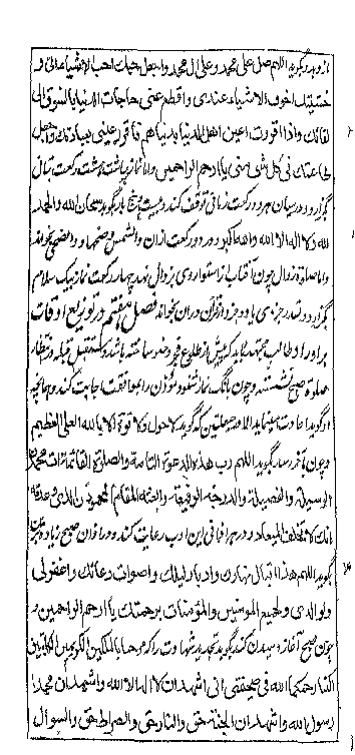 باز و بدو بگوید اللهم صل علی محمد و علی آل محمد و اجعل حبک احب الاشیاء الی و
خشیتک اخوف الاشیاء عندی و اقطع عنی حاجات الدنیا بالشوق الی
لقائک و اذا اقررت اعین اهل الدنیا بدنیاهم فاقرر عینی بعبادتک و اجعل
طاعتک فی کل شی منی یا ارحم الراحمین و اما نماز چاشت هشت رکعت
گزارد و در میان هر دو رکعت زمانی توقف کند و بیست و پنج بار بگوید سبحان الله و الحمد
لله و لا اله الا الله و الله اکبر و در دو رکعت ازان و الشمس و ضحیها و و الضحی بخواند
و اما صلوة زوال چون آفتاب از استوا روی بزوال نهد چهار رکعت نماز بیک سلام
بگزارد و قدر حزبی یا دو حزب از قرآن دران بخواند فصل هفتم در توزیع اوقات
براوراد طالب مجتهد باید که پیش از طلوع فجر وضو ساخته باشد و مستقبل قبله در انتظار
صلوة صبح نشسته و چون بانگ نماز شنود مؤذن را بموافقت اجابت کند و هر آنچه
او گوید اعادت مینماید الا در حیعلتین که گوید لا حول و لا قوة الا بالله العلی العظیم
و چون بآخر رسد گوید اللهم رب هذه الدعوة التامة و الصلوة القائمة آت محمدا
الوسیلة و الفضیلة و الدرجة الرفیعة و ابعثه المقام المحمود الذی وعدته
انک لا تخلف المیعاد و در هر اذانی این ادب رعایت کند و در اذان صبح زیاده
گوید اللهم هذا اقبال نهارک و ادبار لیلک و اصوات دعاتک و اغفر لی
و لوالدی و لجمیع المومنین و المؤمنات برحمتک یا ارحم الراحمین و
چون صبح آغاز دمیدن کند بگوید تجدید شهادت را که مرحبا بالملکین الکریمین الکاتبین
اکتبا رحمکما الله فی صحیفتی انی اشهد ان لا اله الا الله و اشهد ان محمدا
رسول الله و اشهد ان الجنة حق و النار حق و الصراط حق و السوال